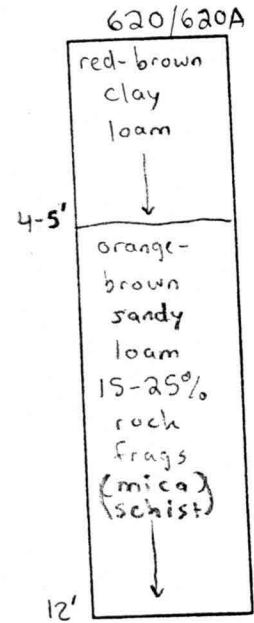 620/620A
red-brown
clay
loam
4-5'
orange-
brown
sandy
loam
15-25%
rock
frags
(mica)
(schist)
12'